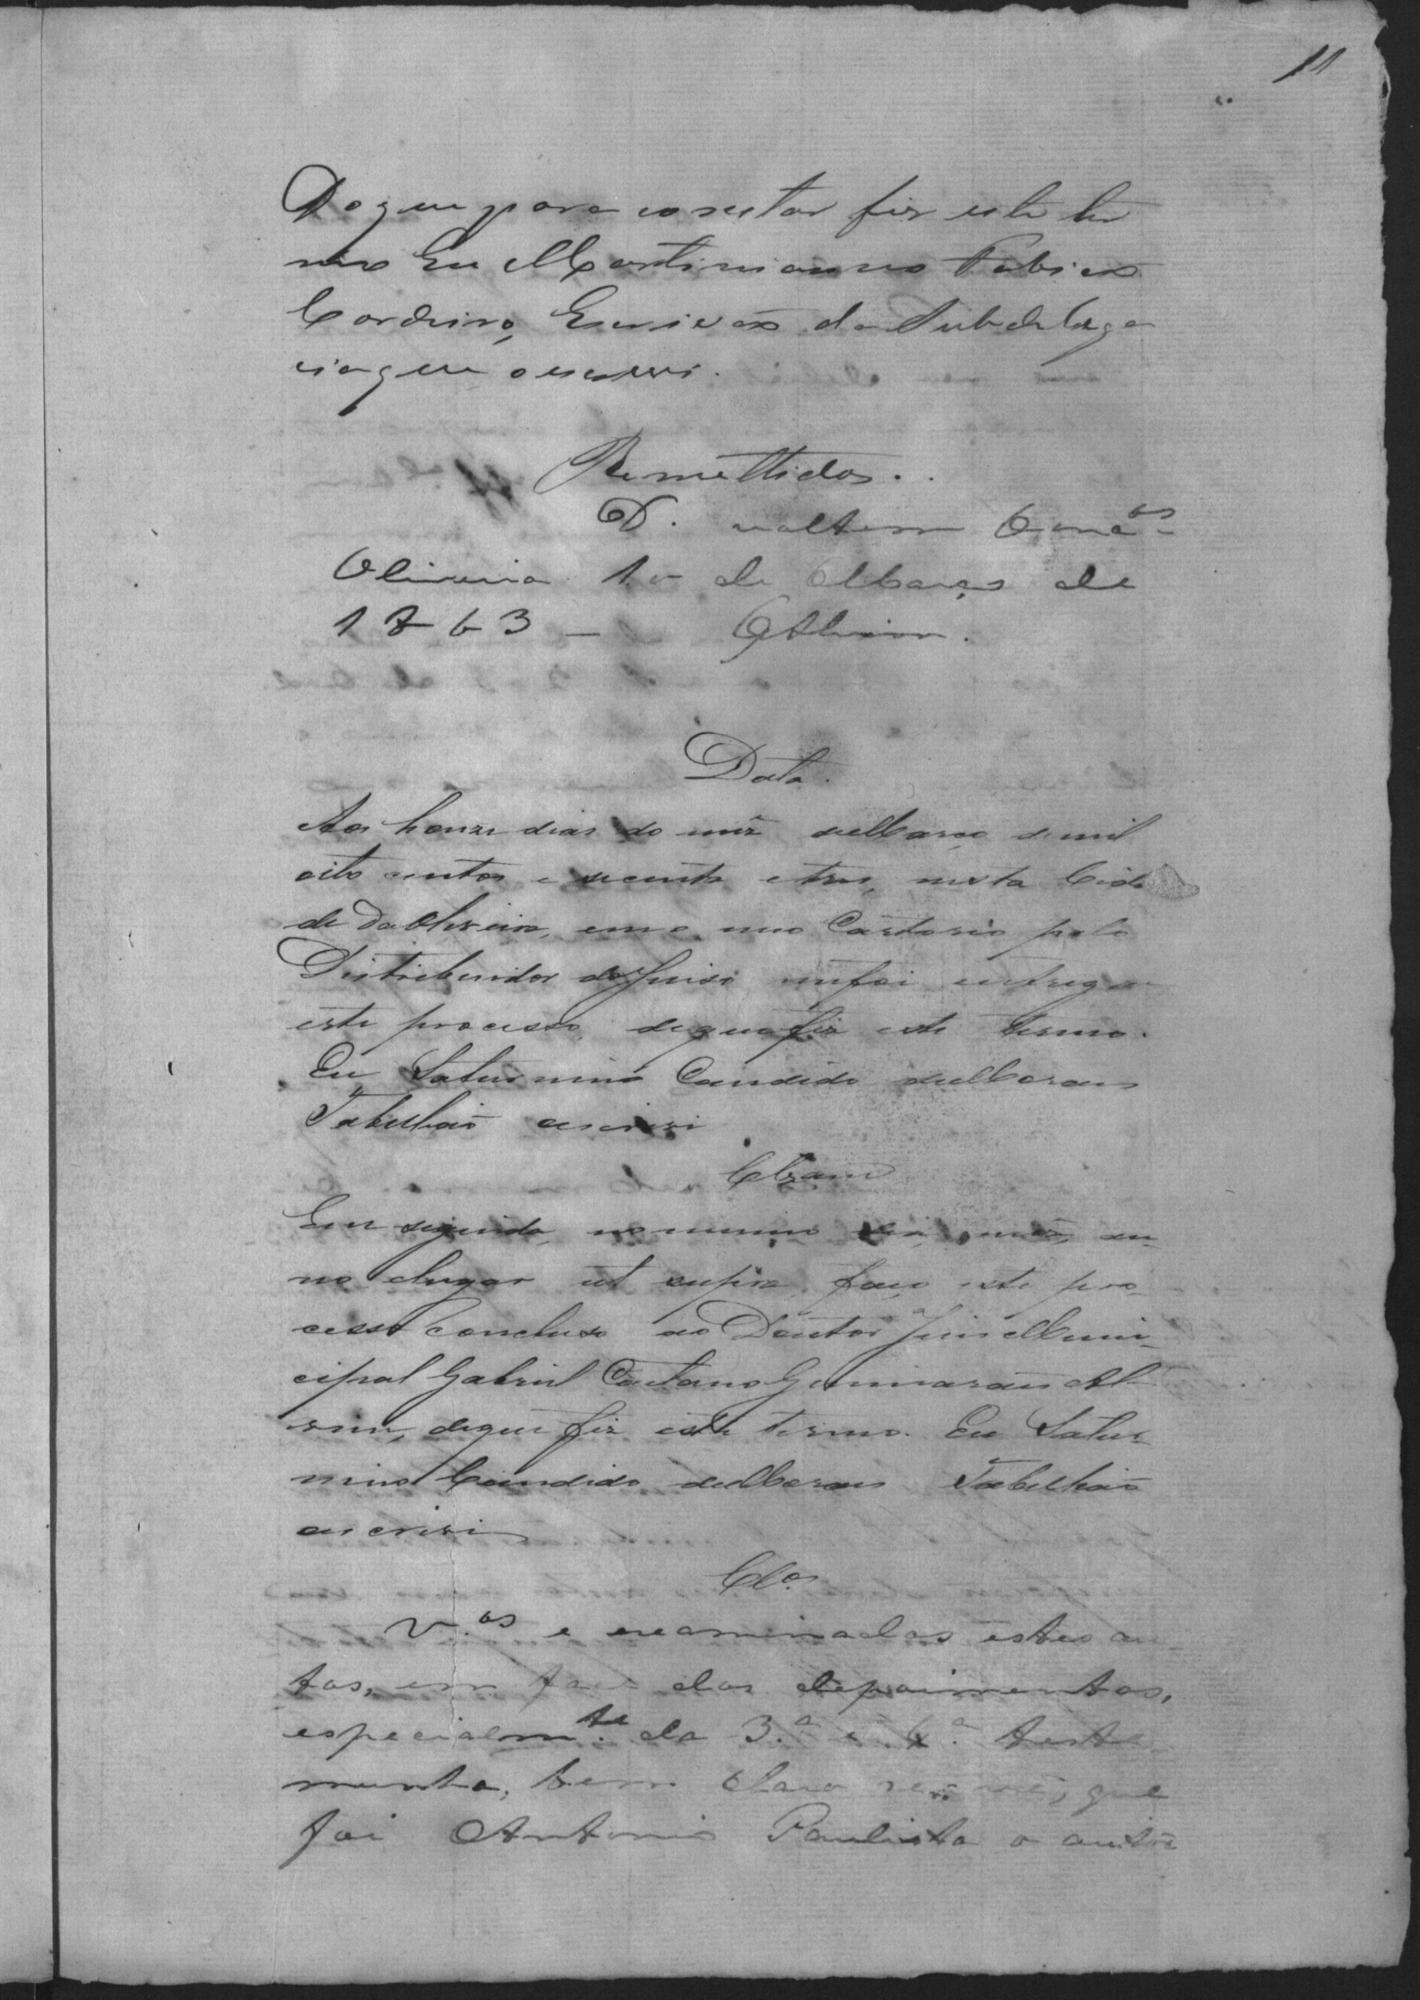 11
Do que para constar fiz este ter
mo Eu Martinianno Fabiao
Cordeiro, Escrivão da Subdelega
cia que o escrevi.
Remettidos.
D. voltem Con.os
Oliveira 10 de Março de
1863 — Alvim.
Data.
Aos honze dias do mez de Março de mil
oito centos e secenta e tres, nesta Cida
de da Oliveira, em o meo Cartorio pelo
Distribuidor do Juiso me foi entregue
este processo, de que fiz este termo.
Eu Saturnino Candido de Moraes
Tabelhão escrivi
Clzam
Em seguida, no mesmo dia, mez, an
no e lugar ut supra, faço este pro
cesso concluso ao Doutor Juis Muni
cipal Gabriel Caetano Guimarães Al
vim, de que fiz este termo. Eu Satur
nino Candido de Moraes Tabelhão
escrivi
Cl.os
V.os e examinados estes au
tos, em face dos depoimentos,
especialm.te da 3.ª e 4.ª teste
munha, bem claro se vê, que
foi Antonio Paulista o autor